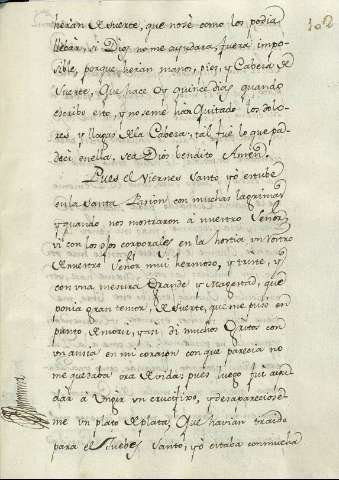 102
heran de suerte, que nose como los podia
llebar, si Dios no me ayudara, fuera impo-
sible, porque heran manos, pies, y Cabeza de
suerte, Que hace oy quince dias quando
escribo esto, y no se me han Quitado los dolo-
res y llagas de la Cabeza, tal fue lo que pa-
deci en ella, sea Dios bendito Amen.
Pues el Viernes Santo yo estube
en la santa Pasion con muchas lagrimas
y quando nos mostraron à nuestro Señor
vi con los ojos corporales en la hostia un rostro
de nuestro Señor mui hermoso, y triste, y
con una mesura Grande y Magestad, que
ponia gran temor, de suerte, que me puso en
punto de morir, y asi di muchos Gritos con
un ansia en mi corazon con que parecia no
me quedaba ora de vida; pues luego fui ayu-
dàr à Ungir un crucifixo, y desaparecioseme
un plato de plata, Que havian traido
para el Juebes Santo, yo estaba con mucha